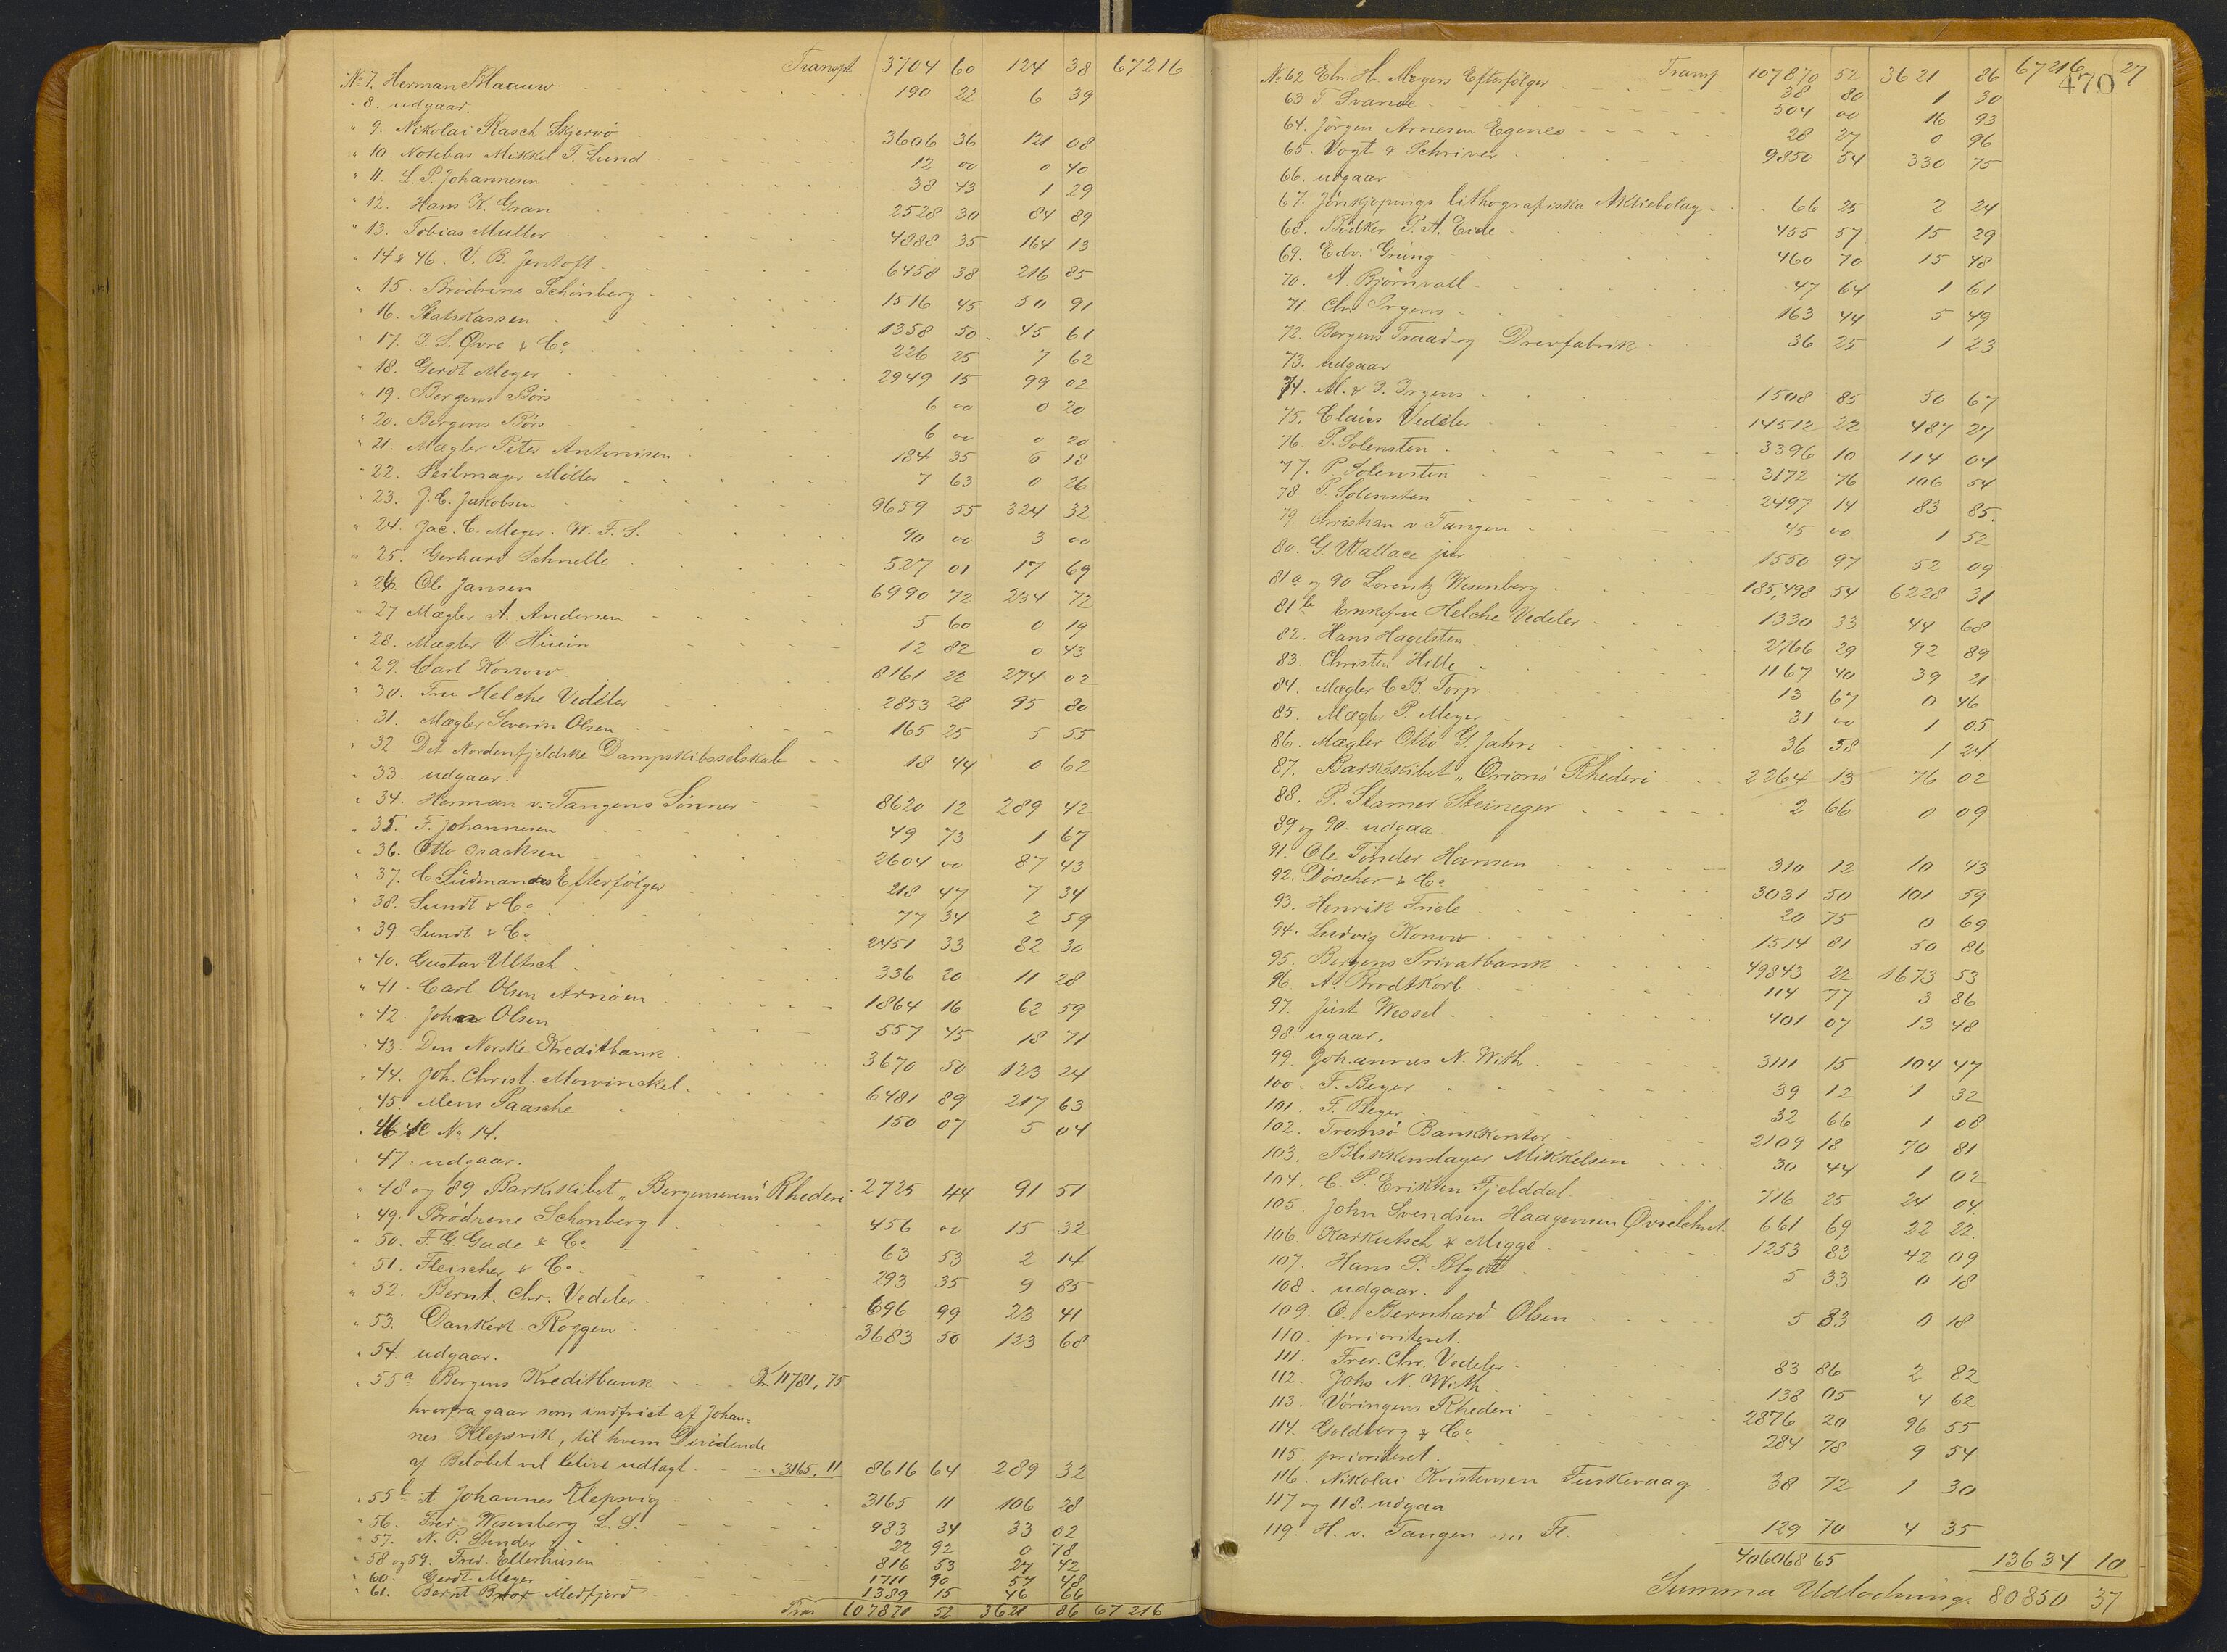 Transpt 3704 60 124 38 67216
No 7. Herman Blaauw 190 22 6 39
" 8. udgaar.
" 9. Nikolai Rasch Skjervö 3606 36 121 08
" 10. Notebas Mikkel T. Lund 12 00 0 40
" 11. L. P. Johannesen 38 43 1 29
" 12. Hans K. Gran 2528 30 84 89
" 13. Tobias Muller 4888 35 164 13
" 14 & 46. V. B. Jentoft 6458 38 216 85
" 15. Brödrene Schönberg 1516 45 50 91
" 16. Statskassen 1358 50 45 61
" 17. J. S. Øvre & Co 226 25 7 62
" 18. Gerdt Meyer 2949 15 99 02
" 19. Bergens Börs 6 00 0 20
" 20. Bergens Börs 6 00 0 20
" 21. Mægler Peter Antonisen 184 35 6 18
" 22. Seilmager Möller 7 63 0 26
" 23. J. C. Jakobsen 9659 55 324 32
" 24. Jac. C. Meyer. W. F. S. 90 00 3 00
" 25. Gerhard Schnelle 527 01 17 69
" 26. Ole Jansen 6990 72 234 72
" 27 Mægler A. Andersen 5 60 0 19
" 28. Mægler V. 12 82 0 43
" 29. Carl Konow 8161 22 274 02
" 30. Fru Helche Vedeler 2853 28 95 80
" 31. Mægler Severin Olsen 165 25 5 55
" 32. Det Nordenfjeldske Dampskibsselskab 18 44 0 62
" 33. udgaar.
" 34. Herman v. Tangens Sönner 8620 12 289 42
" 35. F. Johannesen 49 73 1 67
" 36. Otto Isachsen 2604 00 87 43
" 37. C. Sundmanns Efterfölger 218 47 7 34
" 38. Sundt & Co 77 34 2 59
" 39. Sundt & Co 2451 33 82 30
" 40. Gustav Ultsch 336 20 11 28
" 41. Carl Olsen Arnöen 1864 16 62 59
" 42. Johan Olsen 557 45 18 71
" 43. Den Norske Kreditbank 3670 50 123 24
" 44. Joh. Christ. Mowinckel 6481 89 217 63
" 45. Mens Paasche 150 07 5 04
" 46 se No 14.
" 47. udgaar.
" 48 og 89 Barkskibet „Bergenserens" Rhederi 2725 44 91 51
" 49. Brödrene Schönberg 456 00 15 32
" 50. F. G. Gade & Co 63 53 2 14
" 51. Fleischer & Co 293 35 9 85
" 52. Bernt. Chr. Vedeler 696 99 23 41
" 53. Dankert Roggen 3683 50 123 68
" 54. udgaar.
" 55a Bergens Kreditbank Kr. 11781,75
hvorfra gaar som indfriet af Johan=
nes Klepsvik, til hvem Dividende
af Belöbet vil blive udlagt. " 3165,11 8616 64 289 32
" 55b A. Johannes Klepsvig 3165 11 106 28
" 56. Fred. Wesenberg L. S. 983 34 33 02
" 57. N. P. Stender 22 92 0 78
" 58 og 59. Fred. Ellerhusen 816 53 27 42
" 60. Gerdt Meyer 1711 90 57 48
" 61. Bernt Medfjord 1389 15 46 66
Tran 107870 52 3621 86 67216
470
Transp 107870 52 3621 86 67216 27
No 62 Chr. H. Meyers Efterfölger 38 80 1 30
63 T. Svanöe 504 00 16 93
64. Jörgen Arnesen Egenes 28 27 0 96
65. Vogt & Schriver 9850 54 330 75
66. udgaar
67. Jönkjöpings lithografiska Aktiebolag 66 25 2 24
68. Bödker P. A. Eide 455 57 15 29
69. Edv. Grung 460 70 15 48
70. A. Björnvall 47 64 1 61
71. Chr. Irgens 163 44 5 49
72. Bergens Traad og Drevfabrik 36 25 1 23
73. udgaar
74. M. & J. Irgens 1508 85 50 67
75. Claus Vedeler 14512 22 487 27
76. P. Solensten 3396 10 114 04
77. P. Solensten 3172 76 106 54
78. P. Solensten 2497 14 83 85.
79. Christian v Tangen 45 00 1 52
80. G. Wallace jur 1550 97 52 09
81a og 90 Lorentz Wesenberg 185,498 54 6228 31
81b Enkefru Helche Vedeler 1330 33 44 68
82. Hans Hagelsten 2766 29 92 89
83. Christen Hille 1167 40 39 21
84. Mægler C. B. Torp 13 67 0 46
85. Mægler P. Meyer 31 00 1 05
86. Mægler Otto G. Jahn 36 58 1 24
87. Barkskibet „Orions" Rhederi 2264 13 76 02
88. P. Stamer Steineger 2 66 0 09
89 og 90. udgaa
91. Ole Tönder Hansen 310 12 10 43
92. Döscher & Co 3031 50 101 59
93. Henrik Friele 20 75 0 69
94. Ludvig Konow 1514 81 50 86
95. Bergens Privatbank 49843 22 1673 53
96. A. Brodtkorb 114 77 3 86
97. Just Wessel 401 07 13 48
98. ugaar.
99. Johannes N. With 3111 15 104 47
100. F. Beyer 39 12 1 32
101. F. Beyer 32 66 1 08
102. Tromsö Bankkontor 2109 18 70 81
103. Blikkenslager Mikkelsen 30 44 1 02
104. C. P. Eriksen Fjelddal 716 25 24 04
105. John Svendsen Haagensen 661 69 22 22.
106. Karkutsch & Migge 1253 83 42 09
107. Hans P. Blydt 5 33 0 18
108. udgaar.
109. O. Bernhard Olsen 5 83 0 18
110. prioriteret.
111. Fredr. Chr. Vedeler 83 86 2 82
112. Johs N. With 138 05 4 62
113. Vöringens Rhederi 2876 20 96 55
114. Goldberg & Co 284 78 9 54
115. prioriteret.
116. Nikolai Kristensen Fuskevaag 38 72 1 30
117 og 118. udgaa
119. H. v. Tangen 129 70 4 35
406068 65 13634 10
Summa Udlodning. 80850 37